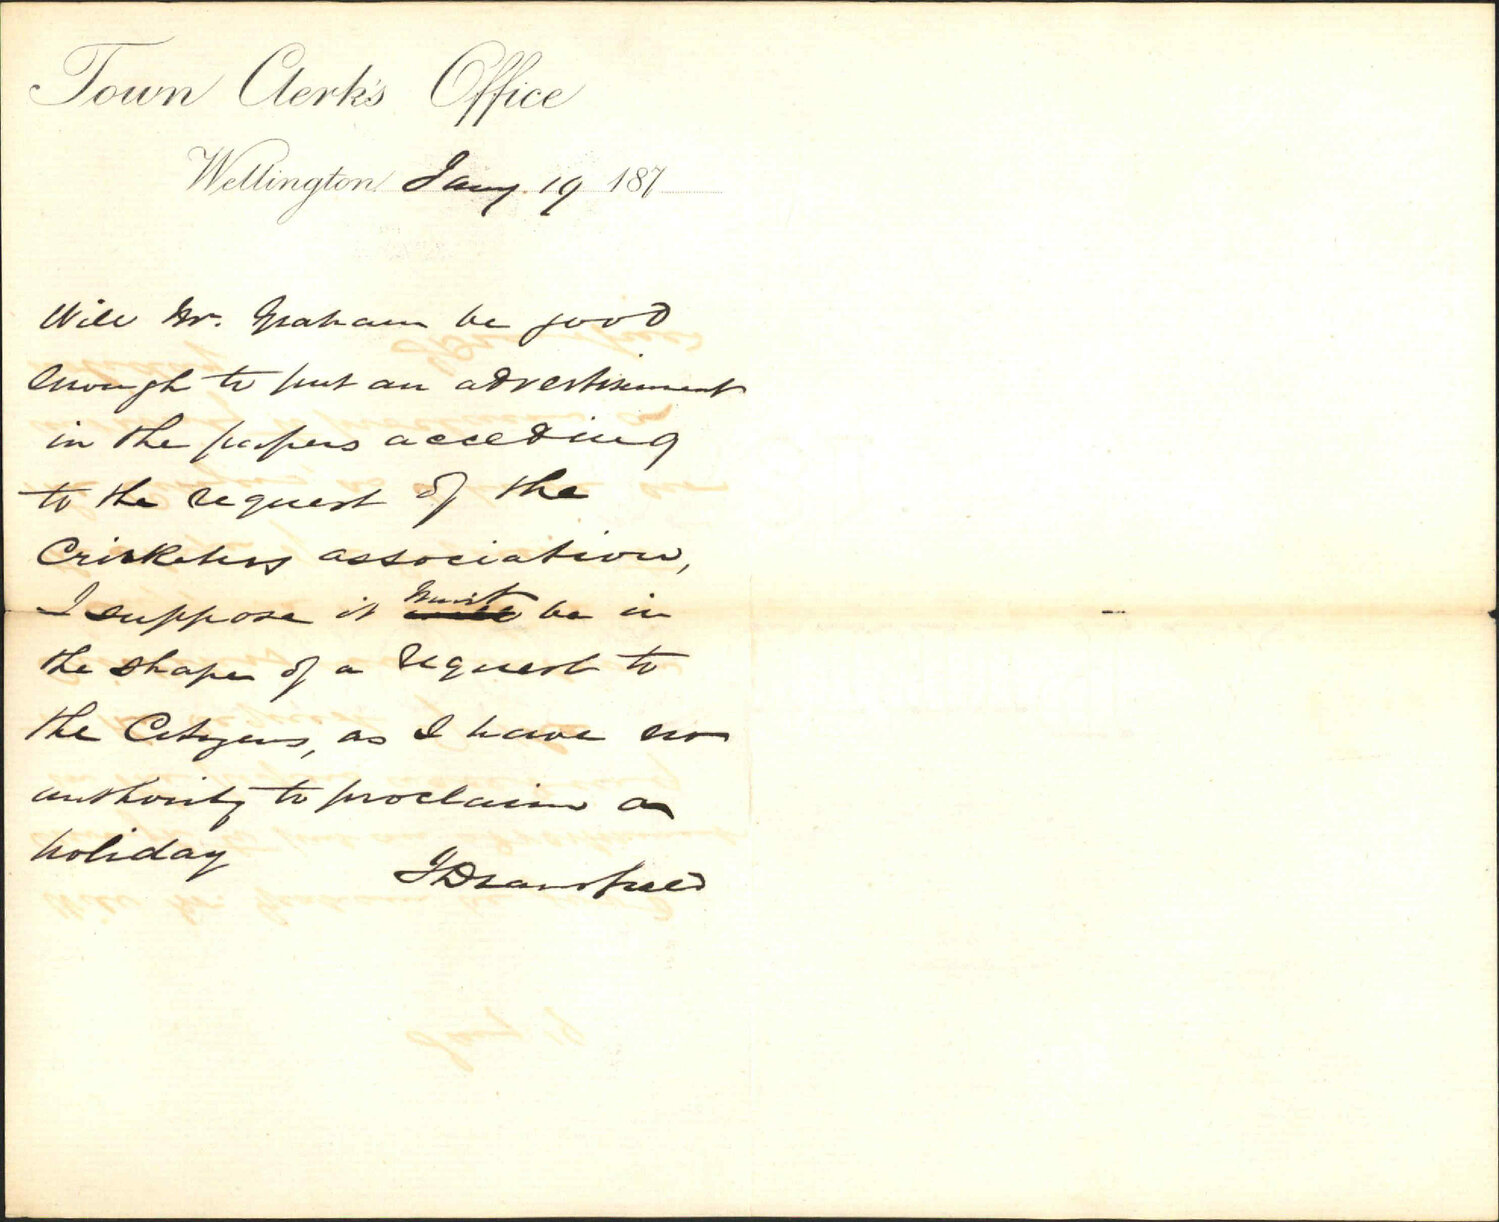 Town Clerk's Office
Wellington Jany. 19 187
Will Mr. Graham be good
enough to put an advertisement
in the papers acceeding
to the request of the
Cricketers association,
I suppose it must be in
the shape of a request to
the Citizens, as I have no
authority to proclaim a
holiday
J Dransfield